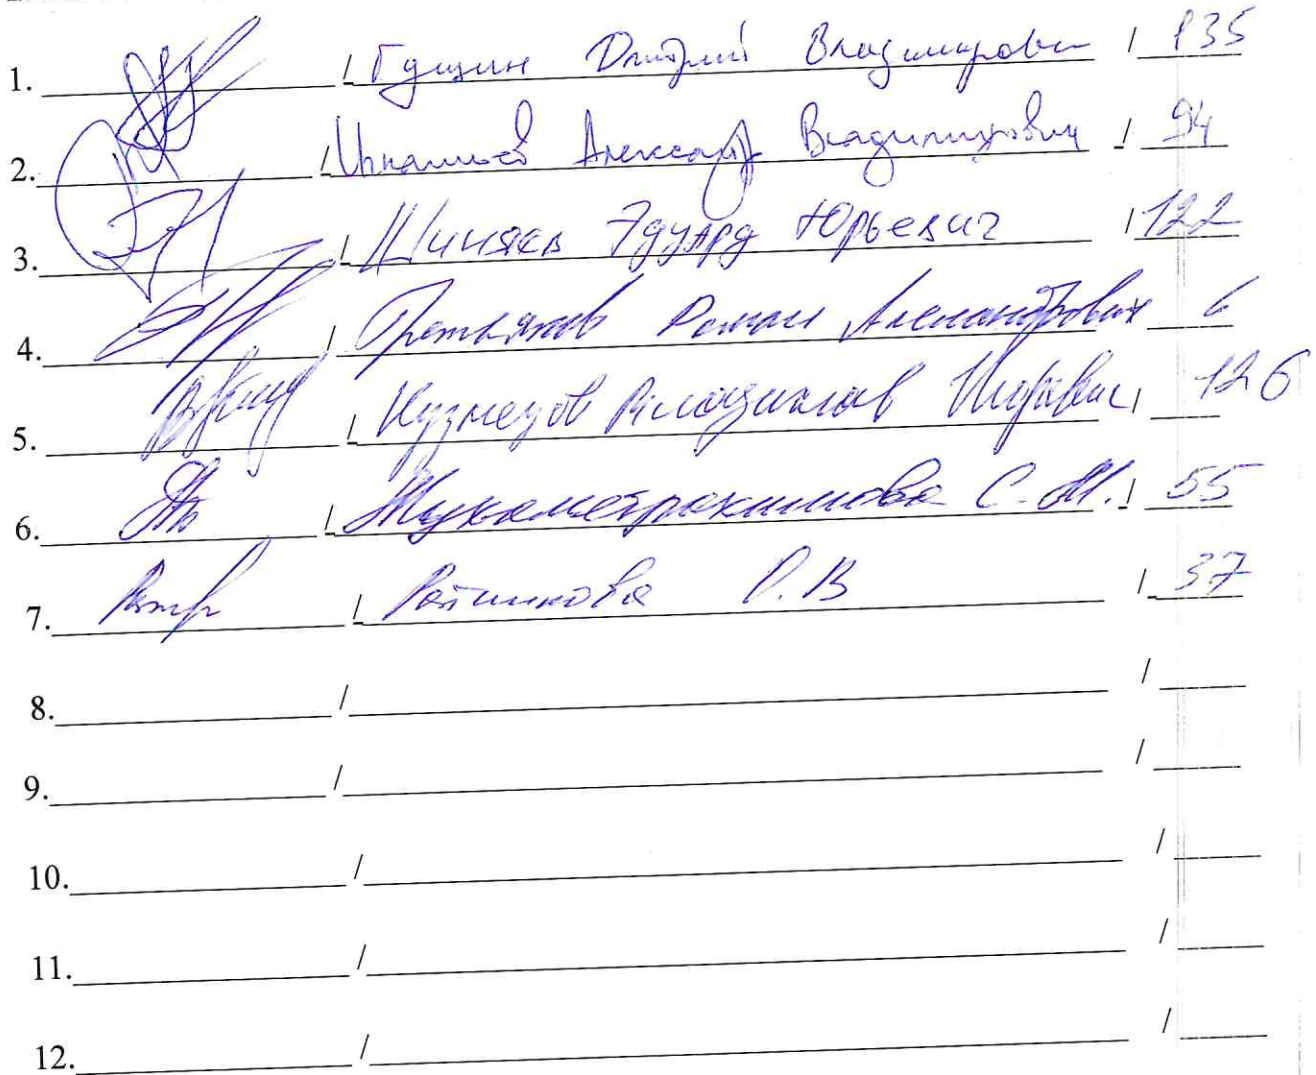 1. / Гущин Дмитрий Владимирович / 135
2. / Игнатьев Александр Владимирович / 94
3. / Шиняев Эдуард Юрьевич / 122
4. / Третьяков Роман Александрович 6
5. / Кузнецов Владислав / 126
6. / Мухаметрахимова С.М. / 55
7. / Р.В / 37
8. / /
9. / /
10. / /
11. / /
12. / /